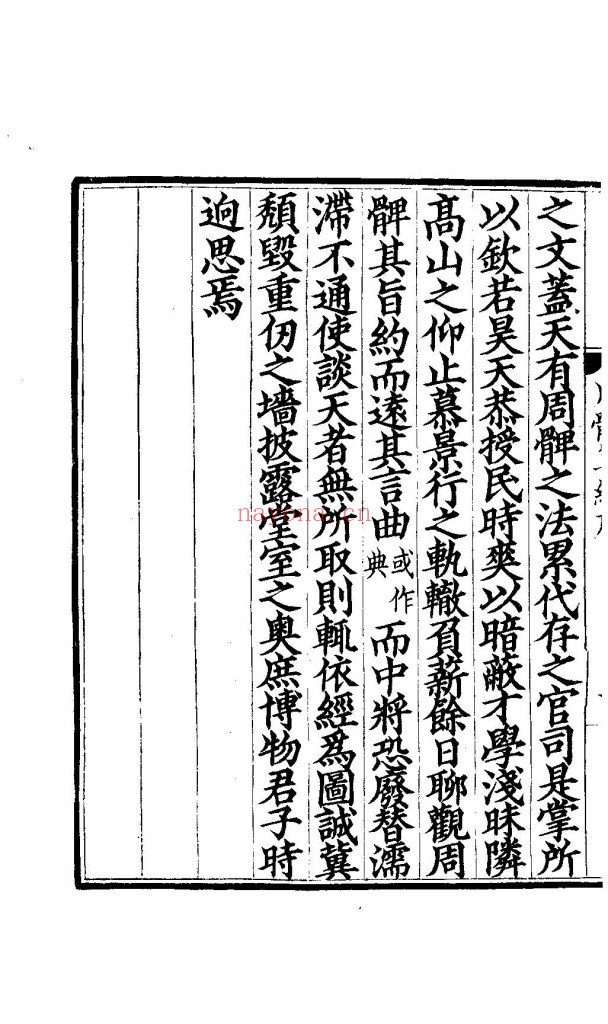 之文蓋天有周髀之法累代存之官司是掌所
以欽若昊天恭授民時爽以暗蔽才學淺昧隣
髙山之仰止慕景行之軌轍負薪餘日聊觀周
髀其旨約而遠其言曲或作典而中將恐廢替濡
滯不通使談天者無所取則輒依經爲圖誠冀
頽毀重仞之墻披露堂室之奥庶博物君子時
逈思焉
nayona.cn